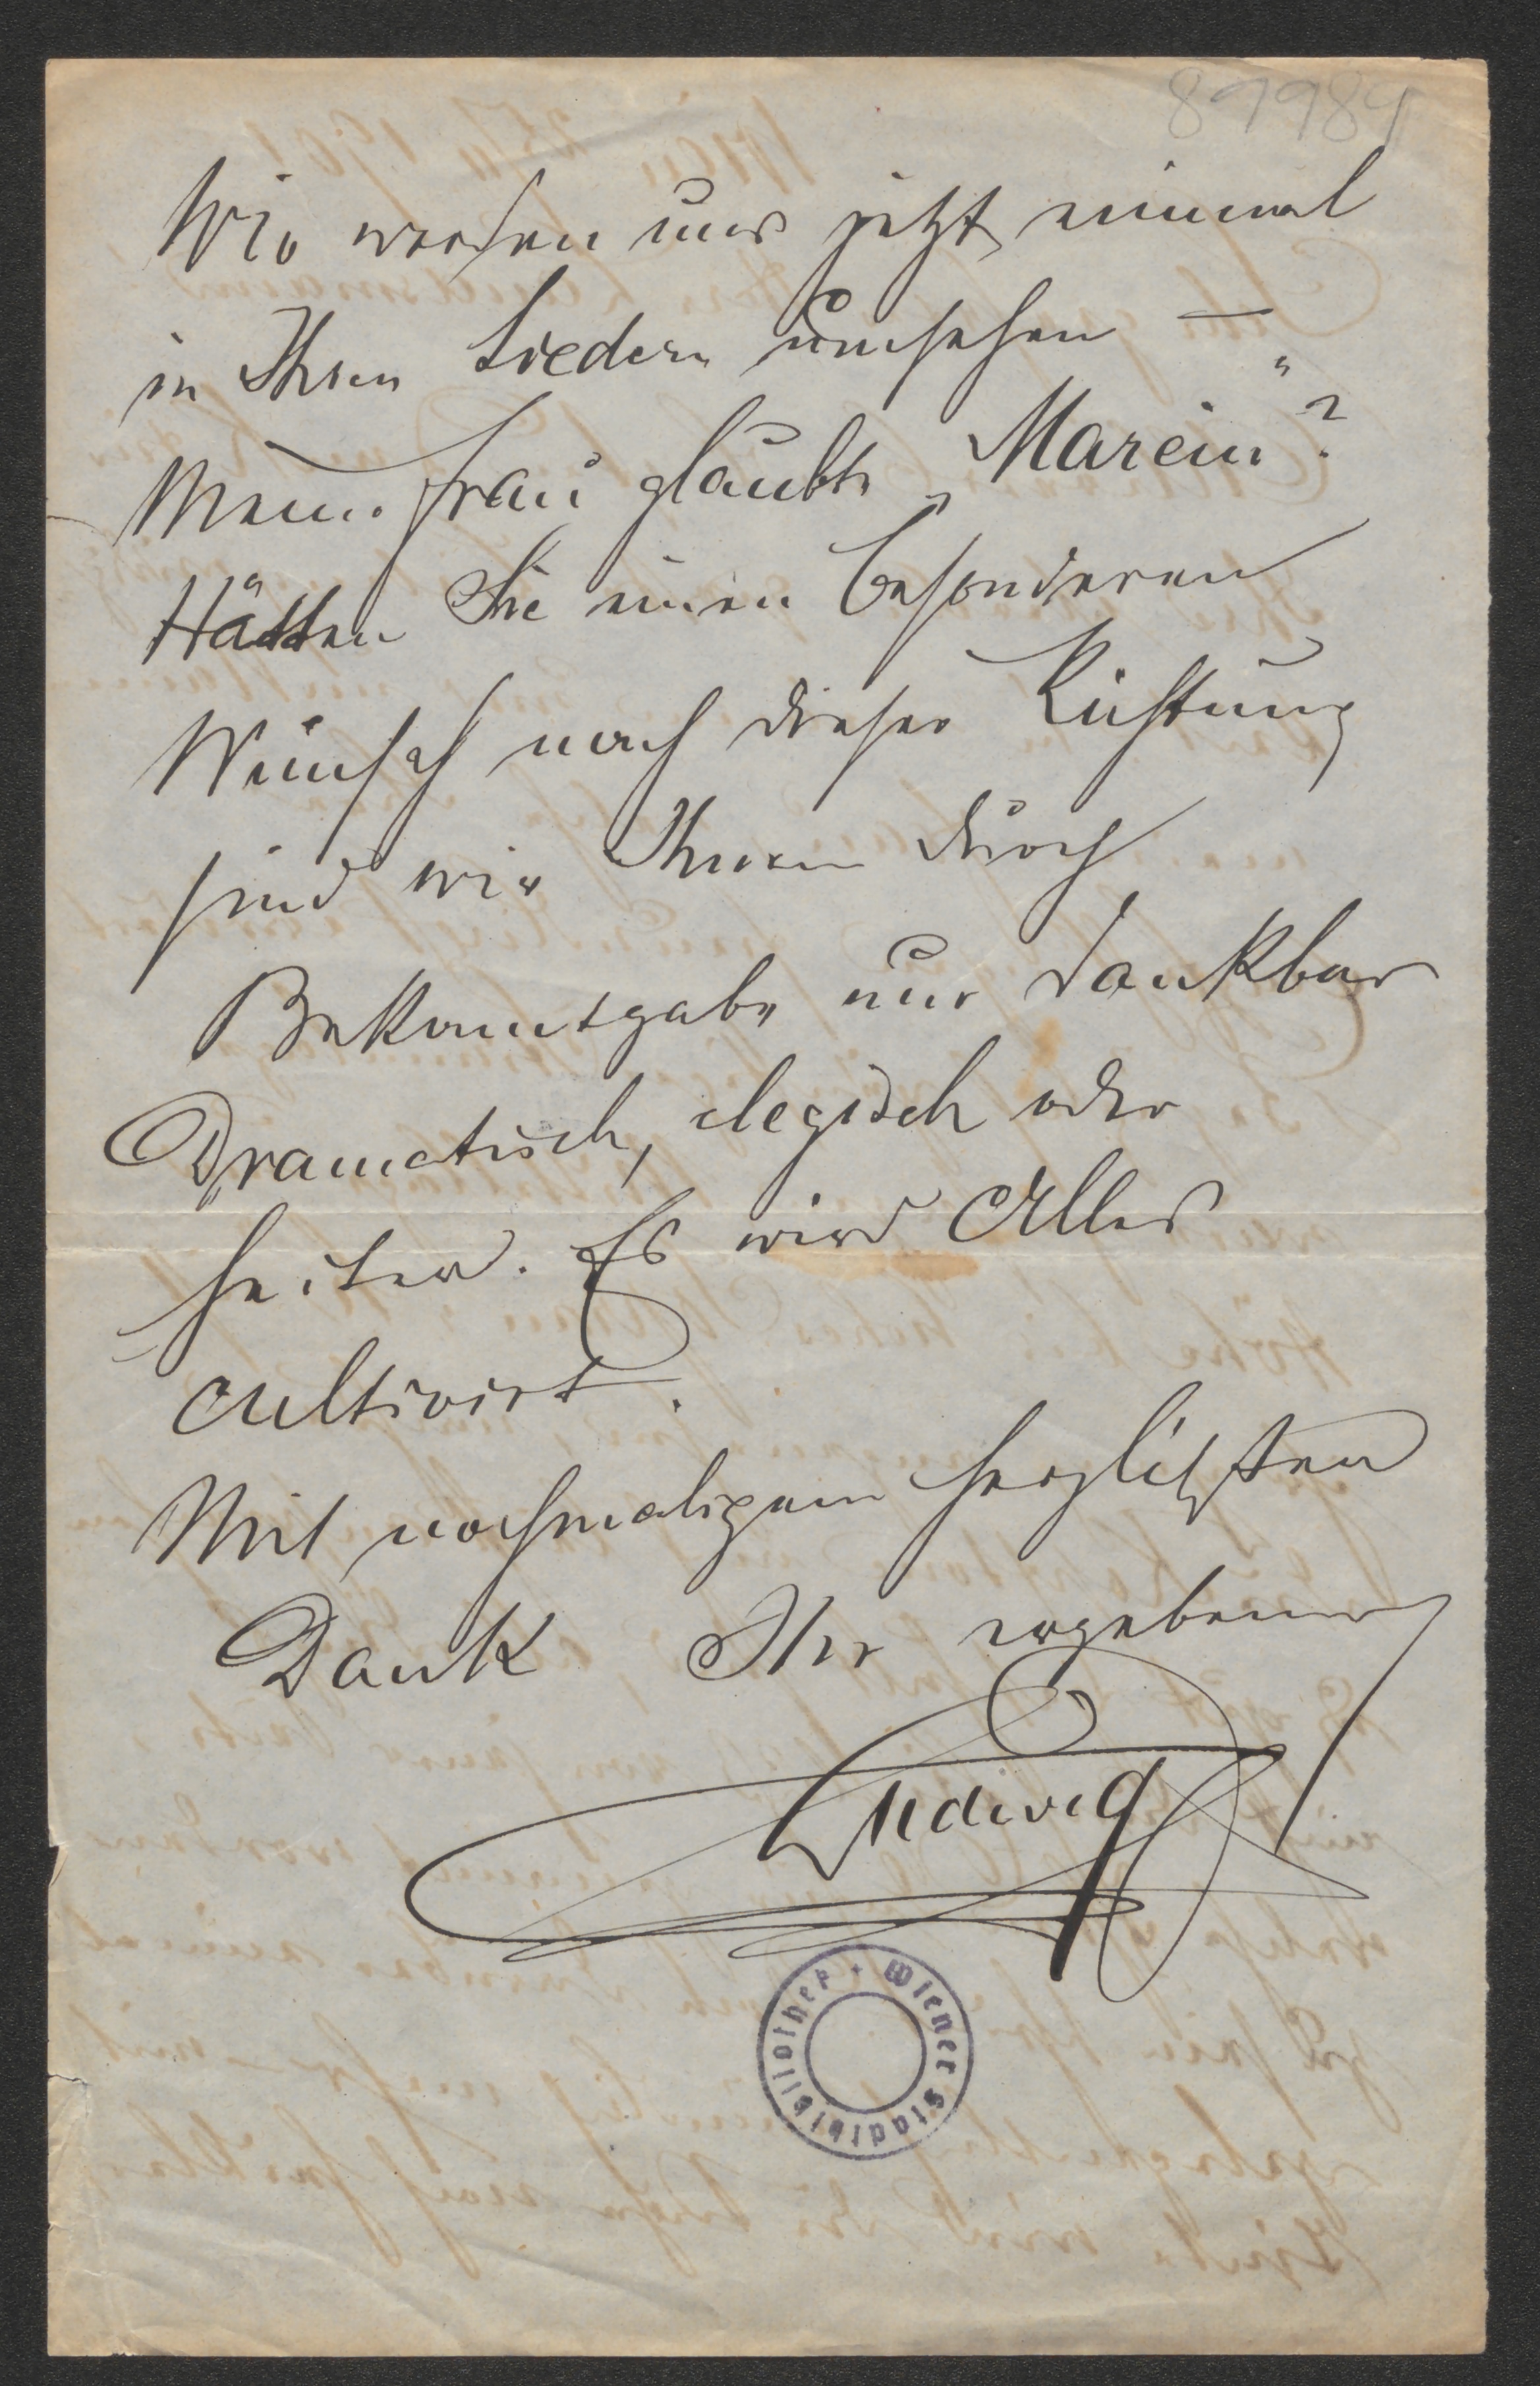 87984
Wir werden uns jetzt einmal
in Ihren Liedern umsehen —
Meine Frau glaubte „Marein“?
Hätten Sie einen besonderen
Wunsch nach dieser Richtung
sind wir Ihnen durch
Bekanntgabe nur dankbar
Dramatisch, elegisch oder
heiter. Es wird Alles
cultivirt.
Mit nochmaligem herzlichsten
Dank Ihr ergebener
Ludwig
Wiener Stadtbibliothek